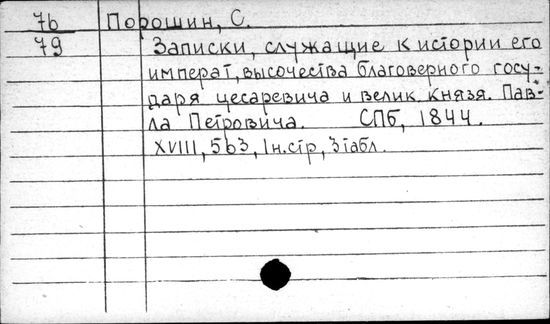 76 Порошин, С.
79 Записки, служащие к истории его
императ, высочества благоверного госу-
даря цесаревича и велик. князя. Пав-
ла Петровича. СПб, 1844.
XVIII, 563, 1н.стр, 3табл.